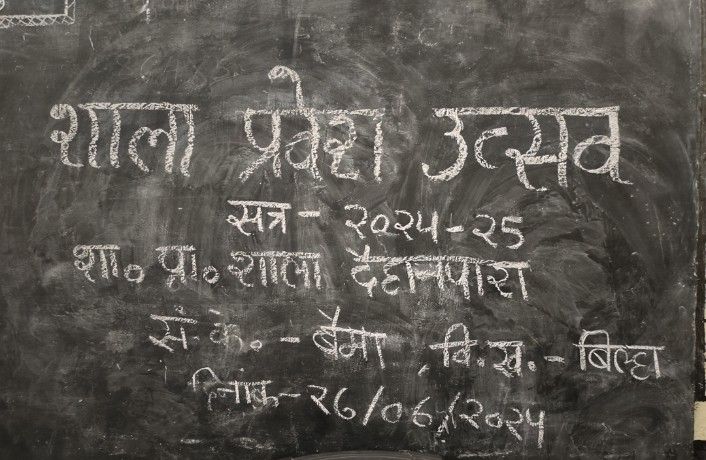 शाला प्रवेश उत्सव
सत्र - २०२४-२५
शा० पू० शाला दैहानपारा
सं. कें. - बैमा, वि.ख. - बिल्हा
दिनांक - २६/०६/२०२४